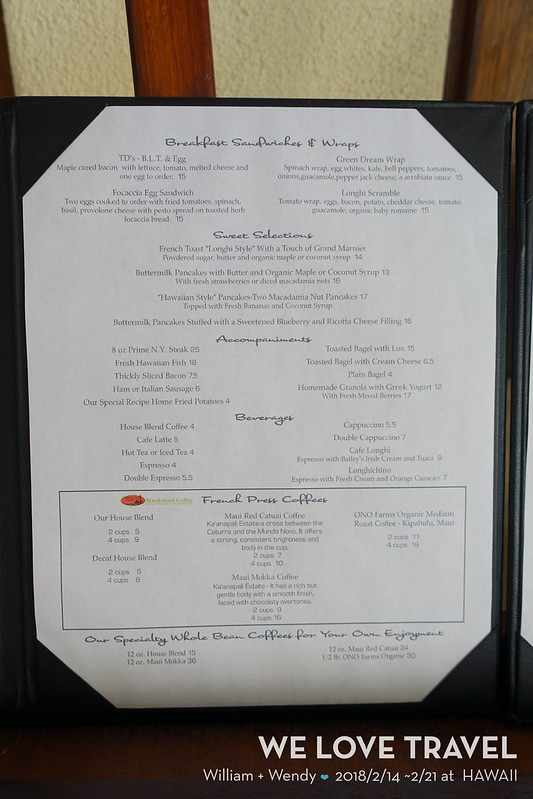 Breakfast Sandwiches & Wraps
TD's - B.L.T. & Egg
Maple cured bacon with lettuce, tomato, melted cheese and
one egg to order. 15
Green Dream Wrap
Spinach wrap, egg whites, kale, bell peppers, tomatoes,
onions,guacamole,pepper jack cheese, a arrabiata sauce 15
Focaccia Egg Sandwich
Two eggs cooked to order with fried tomatoes, spinach,
basil, provolone cheese with pesto spread on toasted herb
focaccia bread. 15
Longhi Scramble
Tomato wrap, eggs, bacon, potato, cheddar cheese, tomato,
guacamole, organic baby romaine 15
Sweet Selections
French Toast "Longhi Style" With a Touch of Grand Marnier
Powdered sugar, butter and organic maple or coconut syrup 14
Buttermilk Pancakes with Butter and Organic Maple or Coconut Syrup 13
With fresh strawberries or diced macadamia nuts 16
"Hawaiian Style" Pancakes-Two Macadamia Nut Pancakes 17
Topped with Fresh Bananas and Coconut Syrup
Buttermilk Pancakes Stuffed with a Sweetened Blueberry and Ricotta Cheese Filling 16
Accompaniments
8 oz Prime N.Y. Steak 25
Fresh Hawaiian Fish 18
Thickly Sliced Bacon 7.5
Ham or Italian Sausage 6
Our Special Recipe Home Fried Potatoes 4
Toasted Bagel with Lox 15
Toasted Bagel with Cream Cheese 6.5
Plain Bagel 4
Homemade Granola with Greek Yogurt 12
With Fresh Mixed Berries 17
Beverages
House Blend Coffee 4
Cafe Latte 5
Hot Tea or Iced Tea 4
Espresso 4
Double Espresso 5.5
Cappuccino 5.5
Double Cappuccino 7
Cafe Longhi
Espresso with Bailey's Irish Cream and Tuaca 9
Longhichino
Espresso with Fresh Cream and Orange Curacao 7
MauiGrown Coffee
French Press Coffees
Our House Blend
2 cups 5
4 cups 9
Decaf House Blend
2 cups 5
4 cups 9
Maui Red Catuai Coffee
Ka'anapali Estate-a cross between the
Caturra and the Mundo Novo. It offers
a strong, consistent brightness and
body in the cup.
2 cups 7
4 cups 10
Maui Mokka Coffee
Ka'anapali Estate - It has a rich but
gentle body with a smooth finish,
laced with chocolaty overtones.
2 cups 9
4 cups 16
ONO Farms Organic Medium
Roast Coffee - Kipahulu, Maui
2 cups 11
4 cups 19
Our Specialty Whole Bean Coffees for Your Own Enjoyment
12 oz. House Blend 15
12 oz. Maui Mokka 36
12 oz. Maui Red Catuai 24
1/2 lb. ONO Farms Organic 30
WE LOVE TRAVEL
William + Wendy ❤ 2018/2/14 ~2/21 at HAWAII